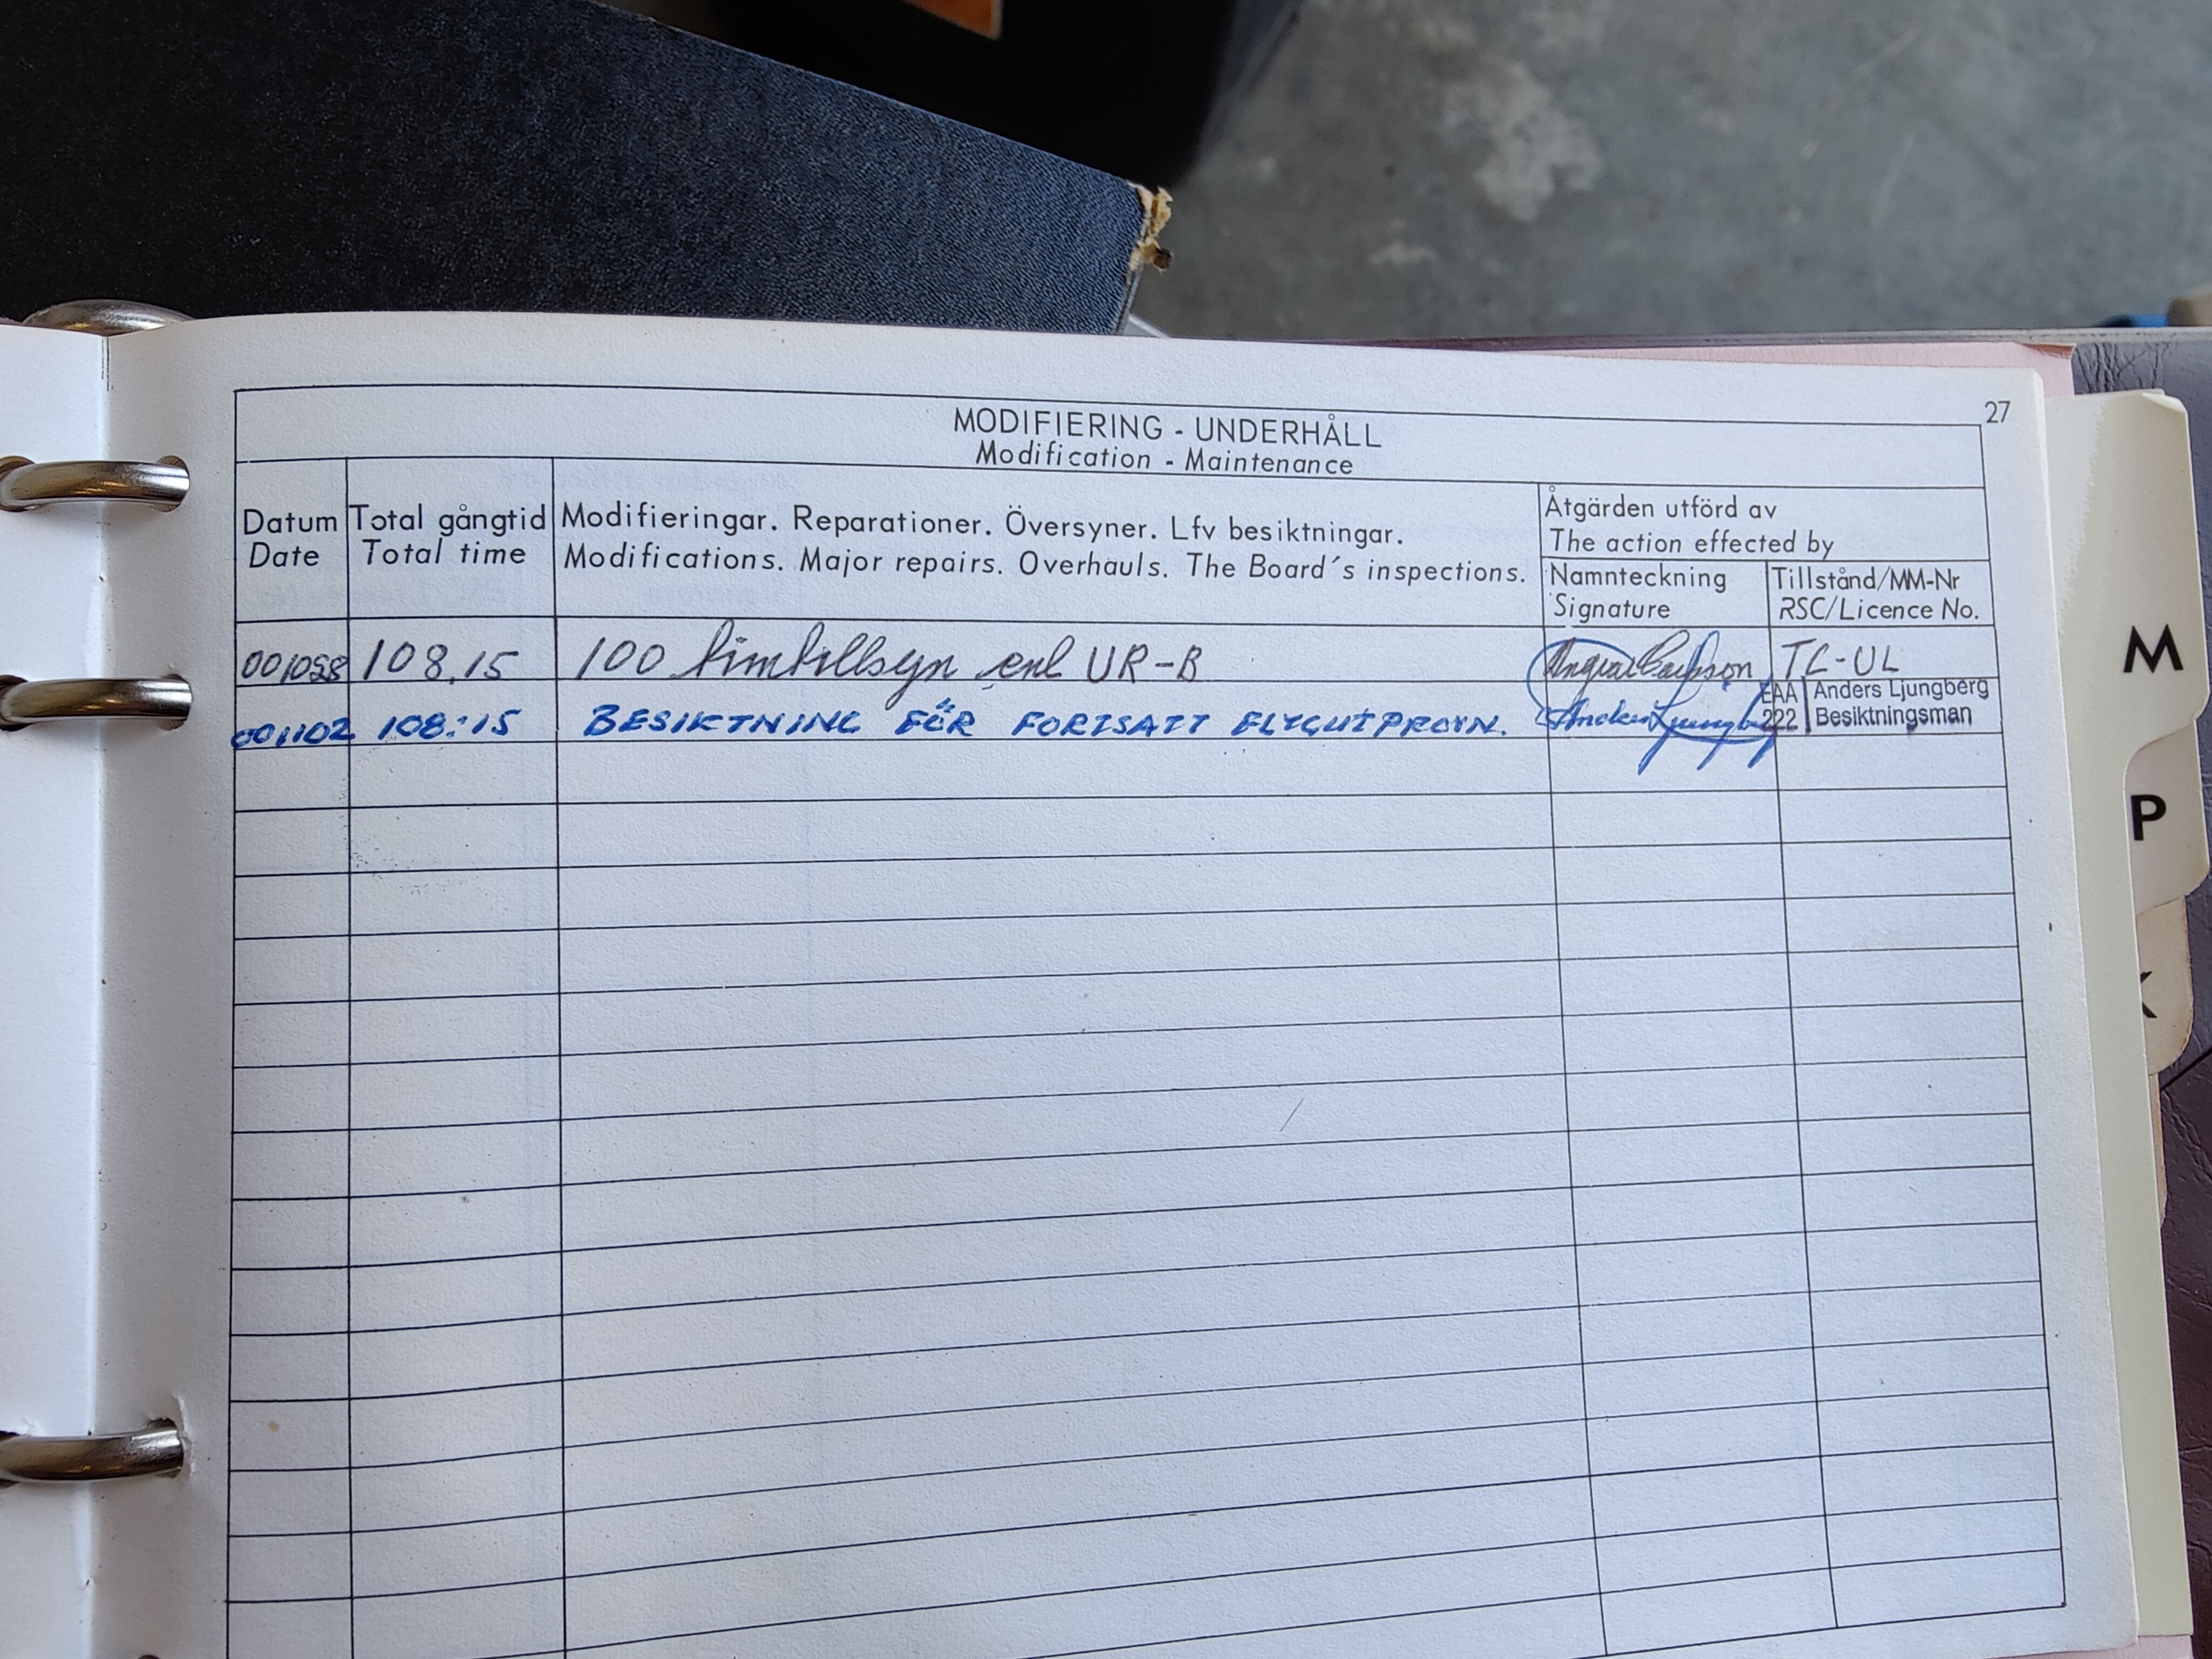 27
MODIFIERING - UNDERHÅLL
Modification - Maintenance
Datum
Date
Total gångtid
Total time
Modifieringar. Reparationer. Översyner. Lfv besiktningar.
Modifications. Major repairs. Overhauls. The Board´s inspections.
Åtgärden utförd av
The action effected by
Namnteckning
Signature
Tillstånd/MM-Nr
RSC/Licence No.
108.15 100 timtillsyn enl UR-B TC-UL
001102 108:15 BESIKTNING FÖR FORTSATT FLYGUTPROVN. Anders Ljungberg
EAA Anders Ljungberg
222 Besiktningsman
M
P
K